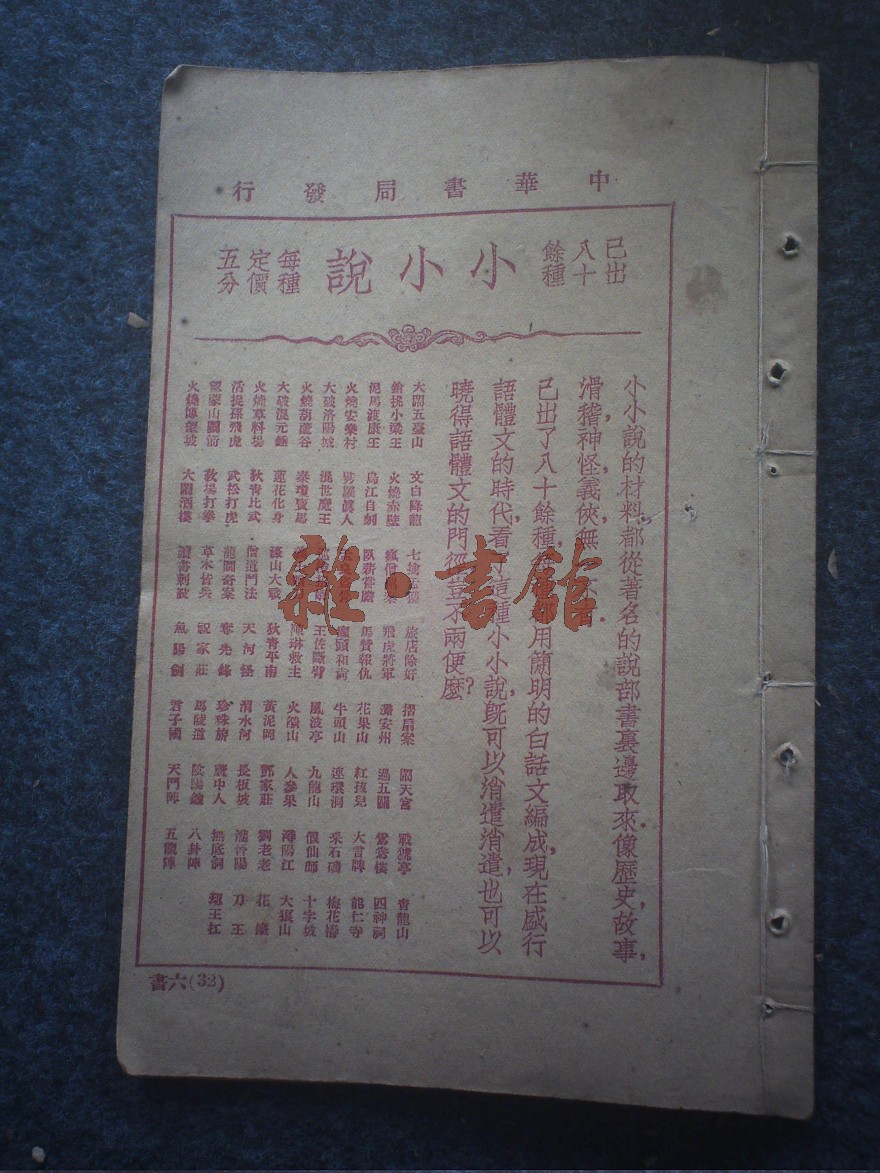 中華書局發行
已出八十餘種
小小說
每種定價五分
小小說的材料,都從著名的說部書裏邊取來.像歷史,故事,
滑稽,神怪,義俠,無
已出了八十餘種,都用簡明的白話文編成.現在盛行
語體文的時代,看了這種小小說,既可以消遣消遣,也可以
曉得語體文的門徑.豈不兩便麼?
大鬧五臺山
槍挑小梁王
泥馬渡康王
火燒安樂村
大破洛陽城
火燒葫蘆谷
大破混元錘
火燒草料場
活捉孫飛虎
望蒙山鬭箭
火燒博望坡
文白降龍
火燒赤壁
烏江自刎
男羅眞人
混世魔王
秦瓊賣馬
蓮花化身
狄青比武
武松打虎
教場打拳
大鬧酒樓
臥薪嘗膽
漆山大戰
僧道鬥法
龍圖奇案
草木皆兵
讀書刺股
旅店除奸
飛虎將軍
馬贊報仇
魔頭和尚
王佐斷臂
陳琳救主
狄青平南
天河配
奪先鋒
祝家莊
魚腸劍
摺扇案
潞安州
花果山
牛頭山
風波亭
火燄山
黃泥岡
渭水河
珍珠旂
馬陵道
君子國
鬧天宮
過五關
紅孩兒
連環洞
九龍山
人參果
鄧家莊
長板坡
廣中人
陰陽鏡
天門陣
戰猇亭
鴛鴦樓
大言牌
采石磯
假仙師
潯陽江
劉老老
瀧睢陽
無底洞
八卦陣
五龍陣
青龍山
四神祠
能仁寺
梅花濤
十字坡
大狼山
花蕊
刀王
瓊王扛
書六(32)
雜·書館